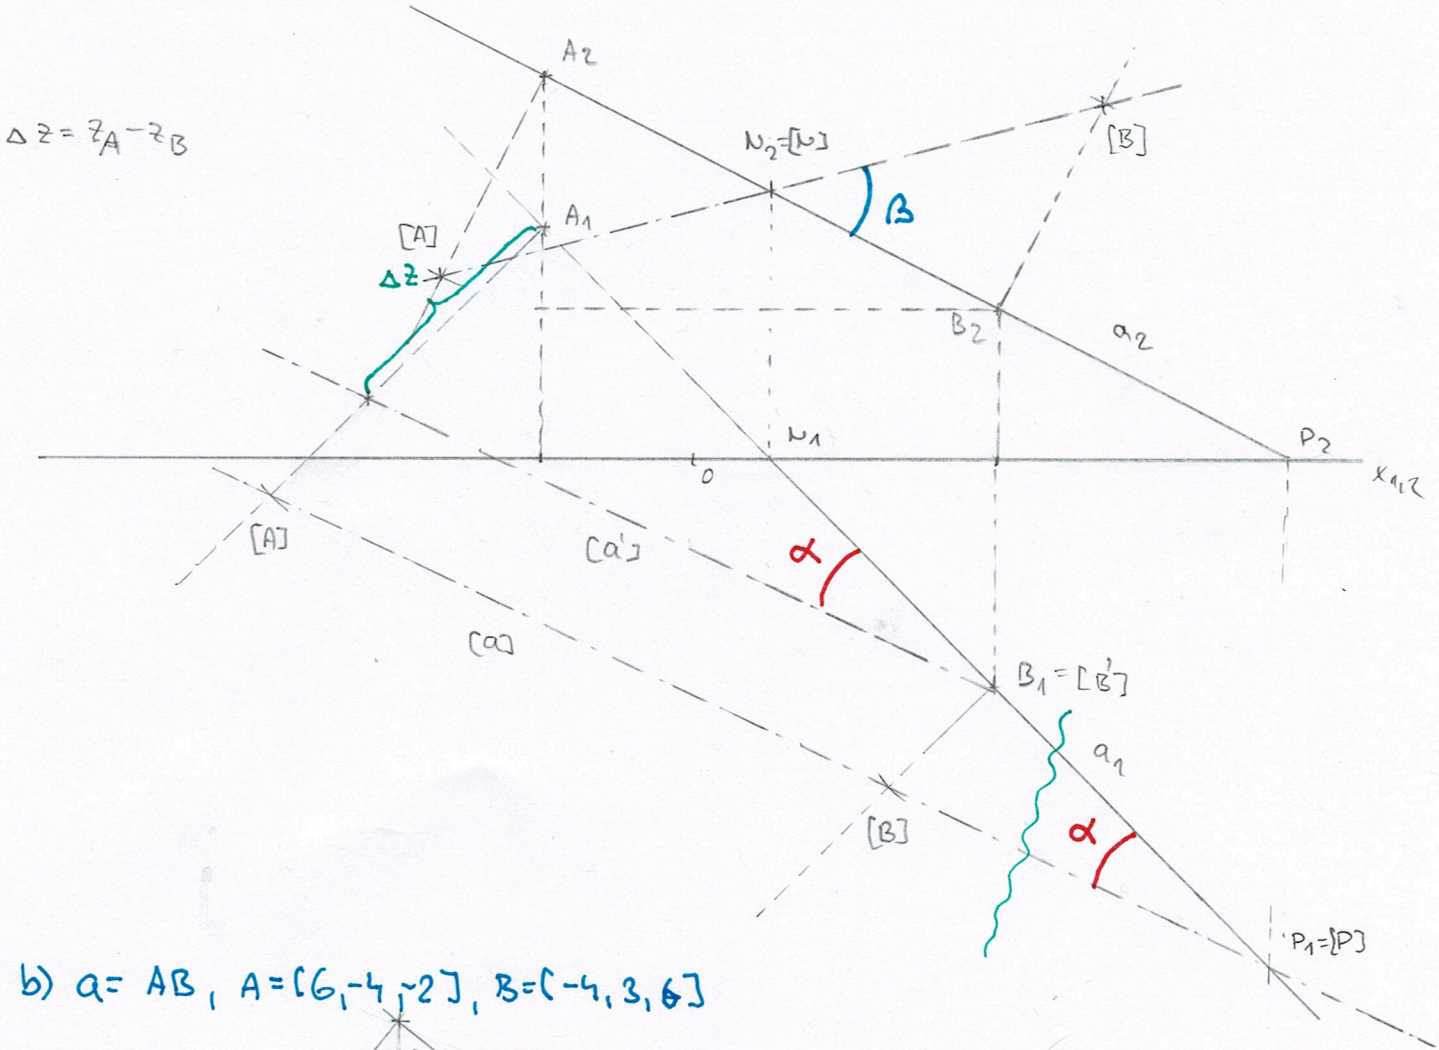 A₂
Δz = z_A - z_B
N₂=[N]
[B]
β
A₁
[A]
Δz
B₂
a₂
N₁
P₂
0
x₁,₂
[A]
[a']
α
[a]
B₁=[B']
a₁
[B]
α
P₁=[P]
b) a= AB, A=[6,-4,-2], B=[-4,3,6]